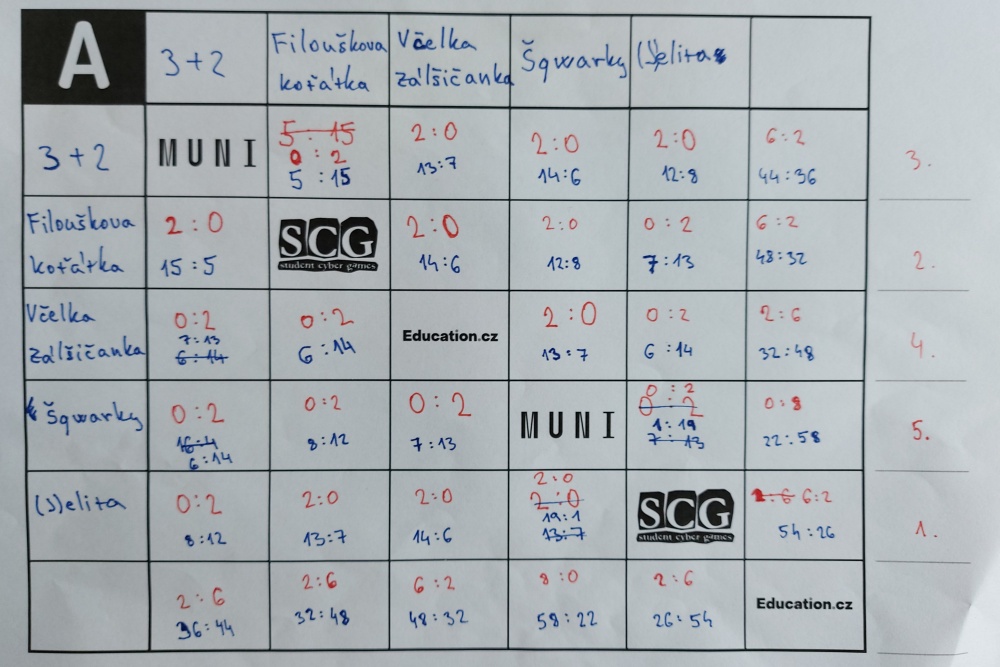 A 3+2 Filouškova koťátka Včelka zálšičanka Šqwarky (s)elita
3+2 MUNI 5:15 0:2 5:15 2:0 13:7 2:0 14:6 2:0 12:8 6:2 44:36 3.
Filouškova koťátka 2:0 15:5 SCG student cyber games 2:0 14:6 2:0 12:8 0:2 7:13 6:2 48:32 2.
Včelka zálšičanka 0:2 7:13 6:14 0:2 6:14 Education.cz 2:0 13:7 0:2 6:14 2:6 32:48 4.
Šqwarky 0:2 16:4 6:14 0:2 8:12 0:2 7:13 MUNI 0:2 0:2 1:19 7:13 0:8 22:58 5.
(s)elita 0:2 8:12 2:0 13:7 2:0 14:6 2:0 2:0 19:1 13:7 SCG student cyber games 2:6 6:2 54:26 1.
2:6 36:44 2:6 32:48 6:2 48:32 8:0 58:22 2:6 26:54 Education.cz